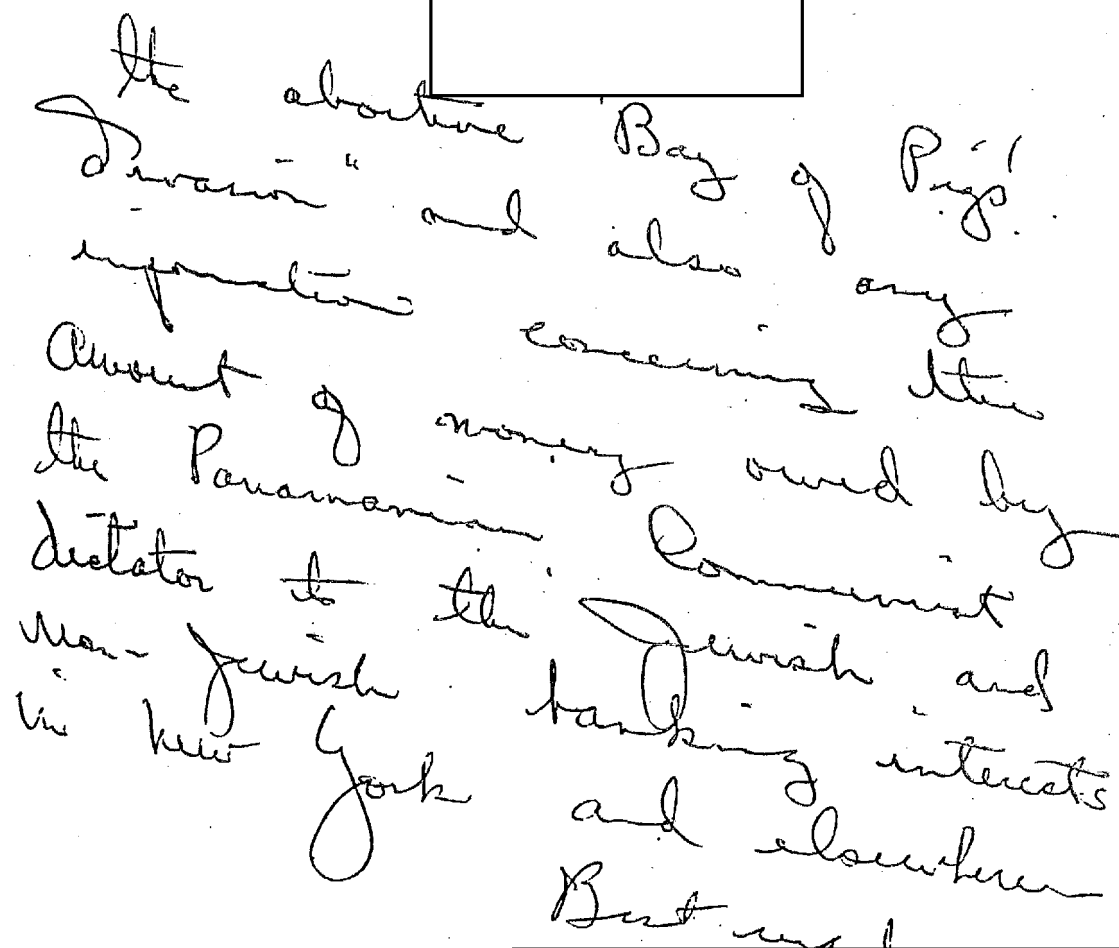 the abortive Bay of Pigs'
Invasion" and also any
information concerning the
amount of money owed by
the Panamanian Communist
dictator to the Jewish and
non-Jewish banking interests
in New York and elsewhere
Best